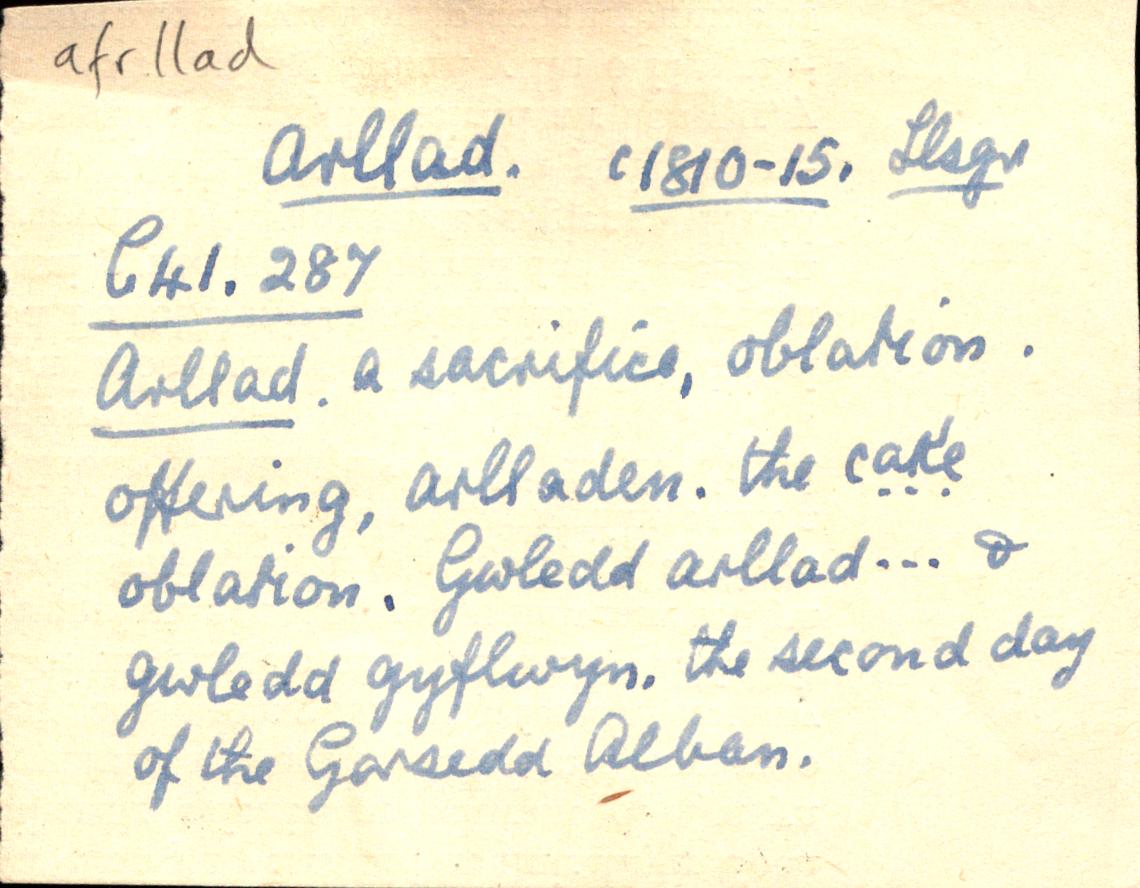 afrllad
Arllad. c1810-15. Llsgr
C41. 287
Arllad. a sacrifice, oblation.
offering, arlladen. the cake
oblation. Gwledd arllad... &
gwledd gyflwyn. the second day
of the Gorsedd Alban.